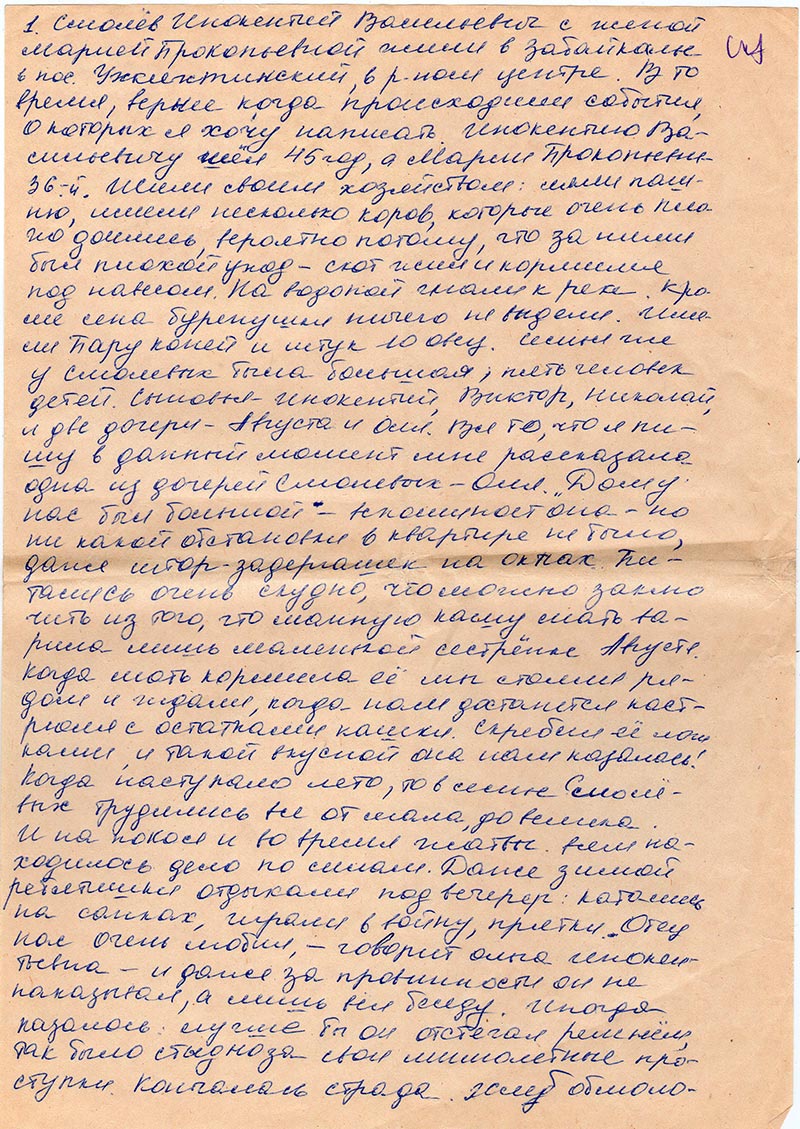 1. Смолёв Инокентий Васильевич с женой
Марией Прокопьевной жили в Забайкалье
в пос. Укжехтинский, в р-ном центре. В то
время, вернее когда происходили события,
о которых я хочу написать Инокентию Ва-
сильевичу шёл 45 год, а Марии Прокопьевне
36-й. Жили своим хозяйством: имели паш-
ню, имели несколько коров, которые очень пло-
хо доились, вероятно потому, что за ними
был плохой уход - скот жил и кормился
под навесом. На водопой гнали к реке. Кро-
ме сена буренушки ничего не видели. Име-
ли пару коней и штук 10 овец. Семья же
у Смолевых была большая, пять человек
детей. Сыновья - Инокентий, Виктор, Николай,
и две дочери - Августа и Оля. Всё то, что я пи-
шу в данный момент мне рассказала
одна из дочерей Смолевых - Оля. „Дом у
нас был большой" - вспоминает она - но
ни какой обстановки в квартире не было,
даже штор-задергашек на окнах. Пи-
тались очень скудно, что можно заклю
чить из того, что манную кашу мать ва-
рила лишь маленькой сестрёнке Августе.
Когда мать кормила её мы стояли ря-
дом и ждали, когда нам достанется каст-
рюля с остатками кашки. Скребли её лож
ками, и такой вкусной она нам казалась!
Когда наступало лето, то в семье Смолё-
вых трудились все от мала до велика.
И на покосе и во время жатвы. Всем на-
ходилось дело по силам. Даже зимой
ребятишки отдыхали под вечер: катались
на санках, играли в войну, прятки. „Отец
нас очень любил, - говорит Ольга Инокен-
тьевна - и даже за провинности он не
наказывал, а лишь вёл беседу. Иногда
казалось: лучше бы он отстегал ремнём,
так было стыдно за свои мимолетные про-
ступки. Кончалась страда. Хлеб обмоло-